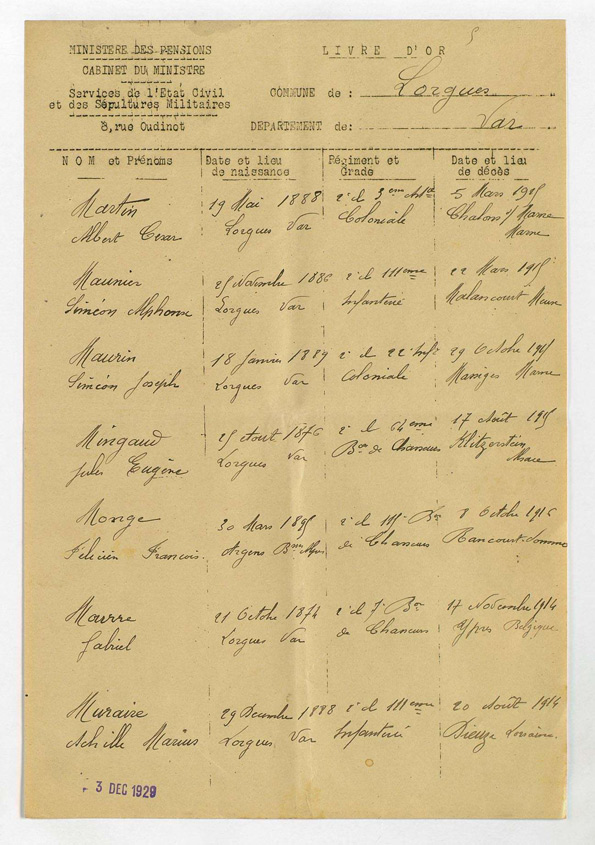 5
MINISTERE DES PENSIONS
CABINET DU MINISTRE
Services de l'Etat Civil
et des Sépultures Militaires
8, rue Oudinot
LIVRE D'OR
COMMUNE de : Lorgues
DEPARTEMENT de: Var
NOM et Prénoms Date et lieu de naissance Régiment et Grade Date et lieu de décès
Martin 19 Mai 1888 2e cl 3eme Artie 5 Mars 1915
Albert Cesar Lorgues Var Coloniale Chalons s/ Marne
Marne
Maunier 25 Novembre 1886 2e cl 111eme 22 Mars 1915
Siméon Alphonse Lorgues Var Infanterie Malancourt Meuse
Maurin 18 Janvier 1889 2e cl 22e Infie 29 Octobre 1915
Siméon Joseph Lorgues Var Coloniale Massiges Marne
Mingaud 25 Aout 1876 2e cl 64eme 17 Août 1915
Jules Eugène Lorgues Var Bon de Chasseurs
Alsace
Monge 30 Mars 1895 2e cl Bon 8 Octobre 1916
Félicien Francois. Argens Bses Alpes de Chasseurs Rancourt. Somme
Mourre 21 Octobre 1874 2e cl 7e Bon 17 Novembre 1914
Gabriel Lorgues Var de Chasseurs Ypres Belgique
Muraire 29 Decembre 1888 2e cl 111eme 20 Août 1914
Achille Marius Lorgues Var Infanterie Dieuze Lorraine.
3 DEC 1929